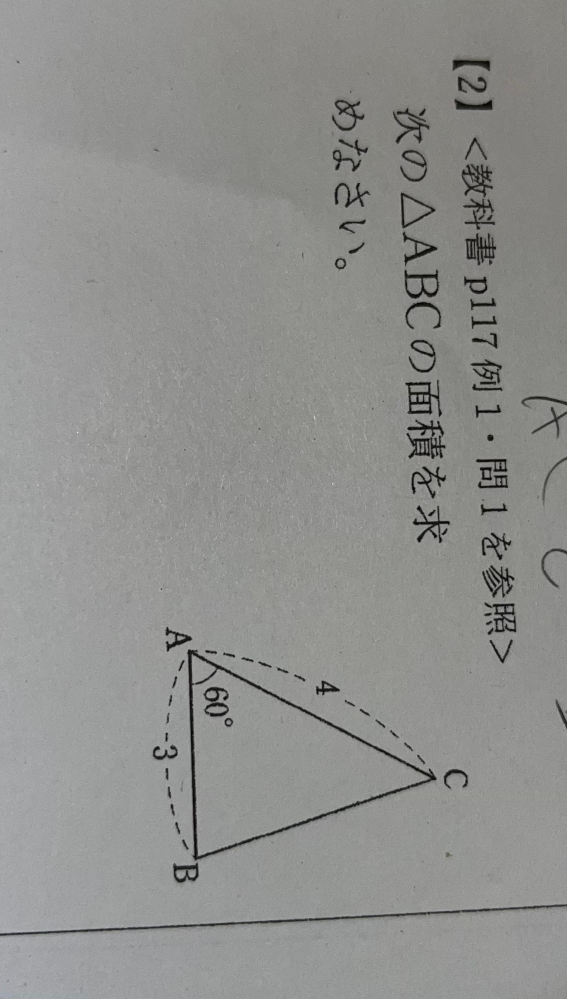 【2】<教科書 p117 例1・問1を参照>
次の△ABCの面積を求
めなさい。
C
4
60°
A
3
B